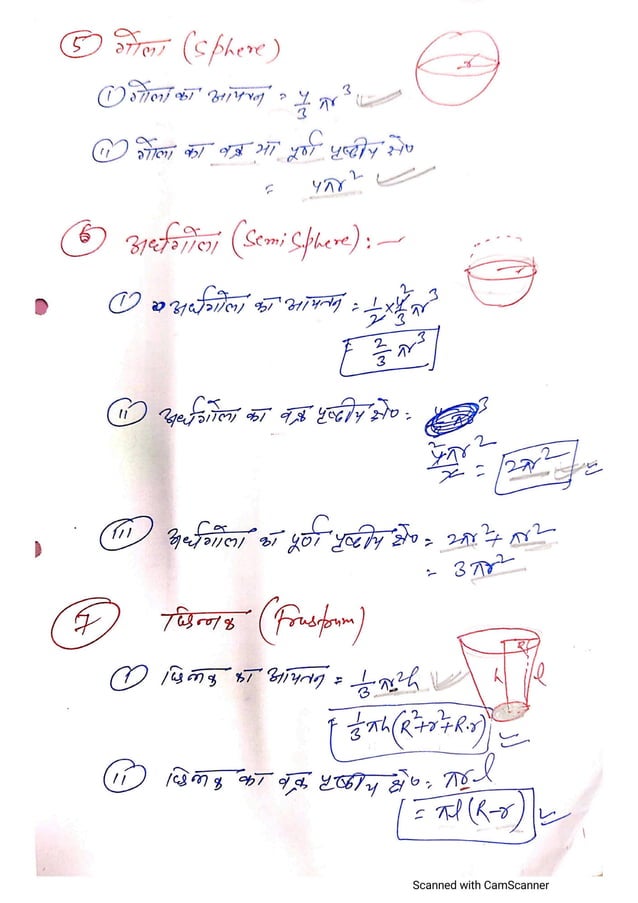 ⑤ गोला (Sphere)
r
① गोला का आयतन = 4/3 πr³
⑪ गोला का वक्र या पूर्ण पृष्ठीय क्षे०
= 4πr²
⑥ अर्धगोला (Semi Sphere) :-
① अर्धगोला का आयतन = 1/2 × 4/3 πr³
= 2/3 πr³
⑪ अर्धगोला का वक्र पृष्ठीय क्षे० =
4πr²/2 = 2πr²
III अर्धगोला का पूर्ण पृष्ठीय क्षे० = 2πr² + πr²
= 3πr²
⑦ छिन्नक (Frustrum)
R h l
① छिन्नक का आयतन = 1/3 πr²h
= 1/3 πh(R²+r²+R.r)
⑪ छिन्नक का वक्र पृष्ठीय क्षे० = πrl
= πl(R-r)
Scanned with CamScanner